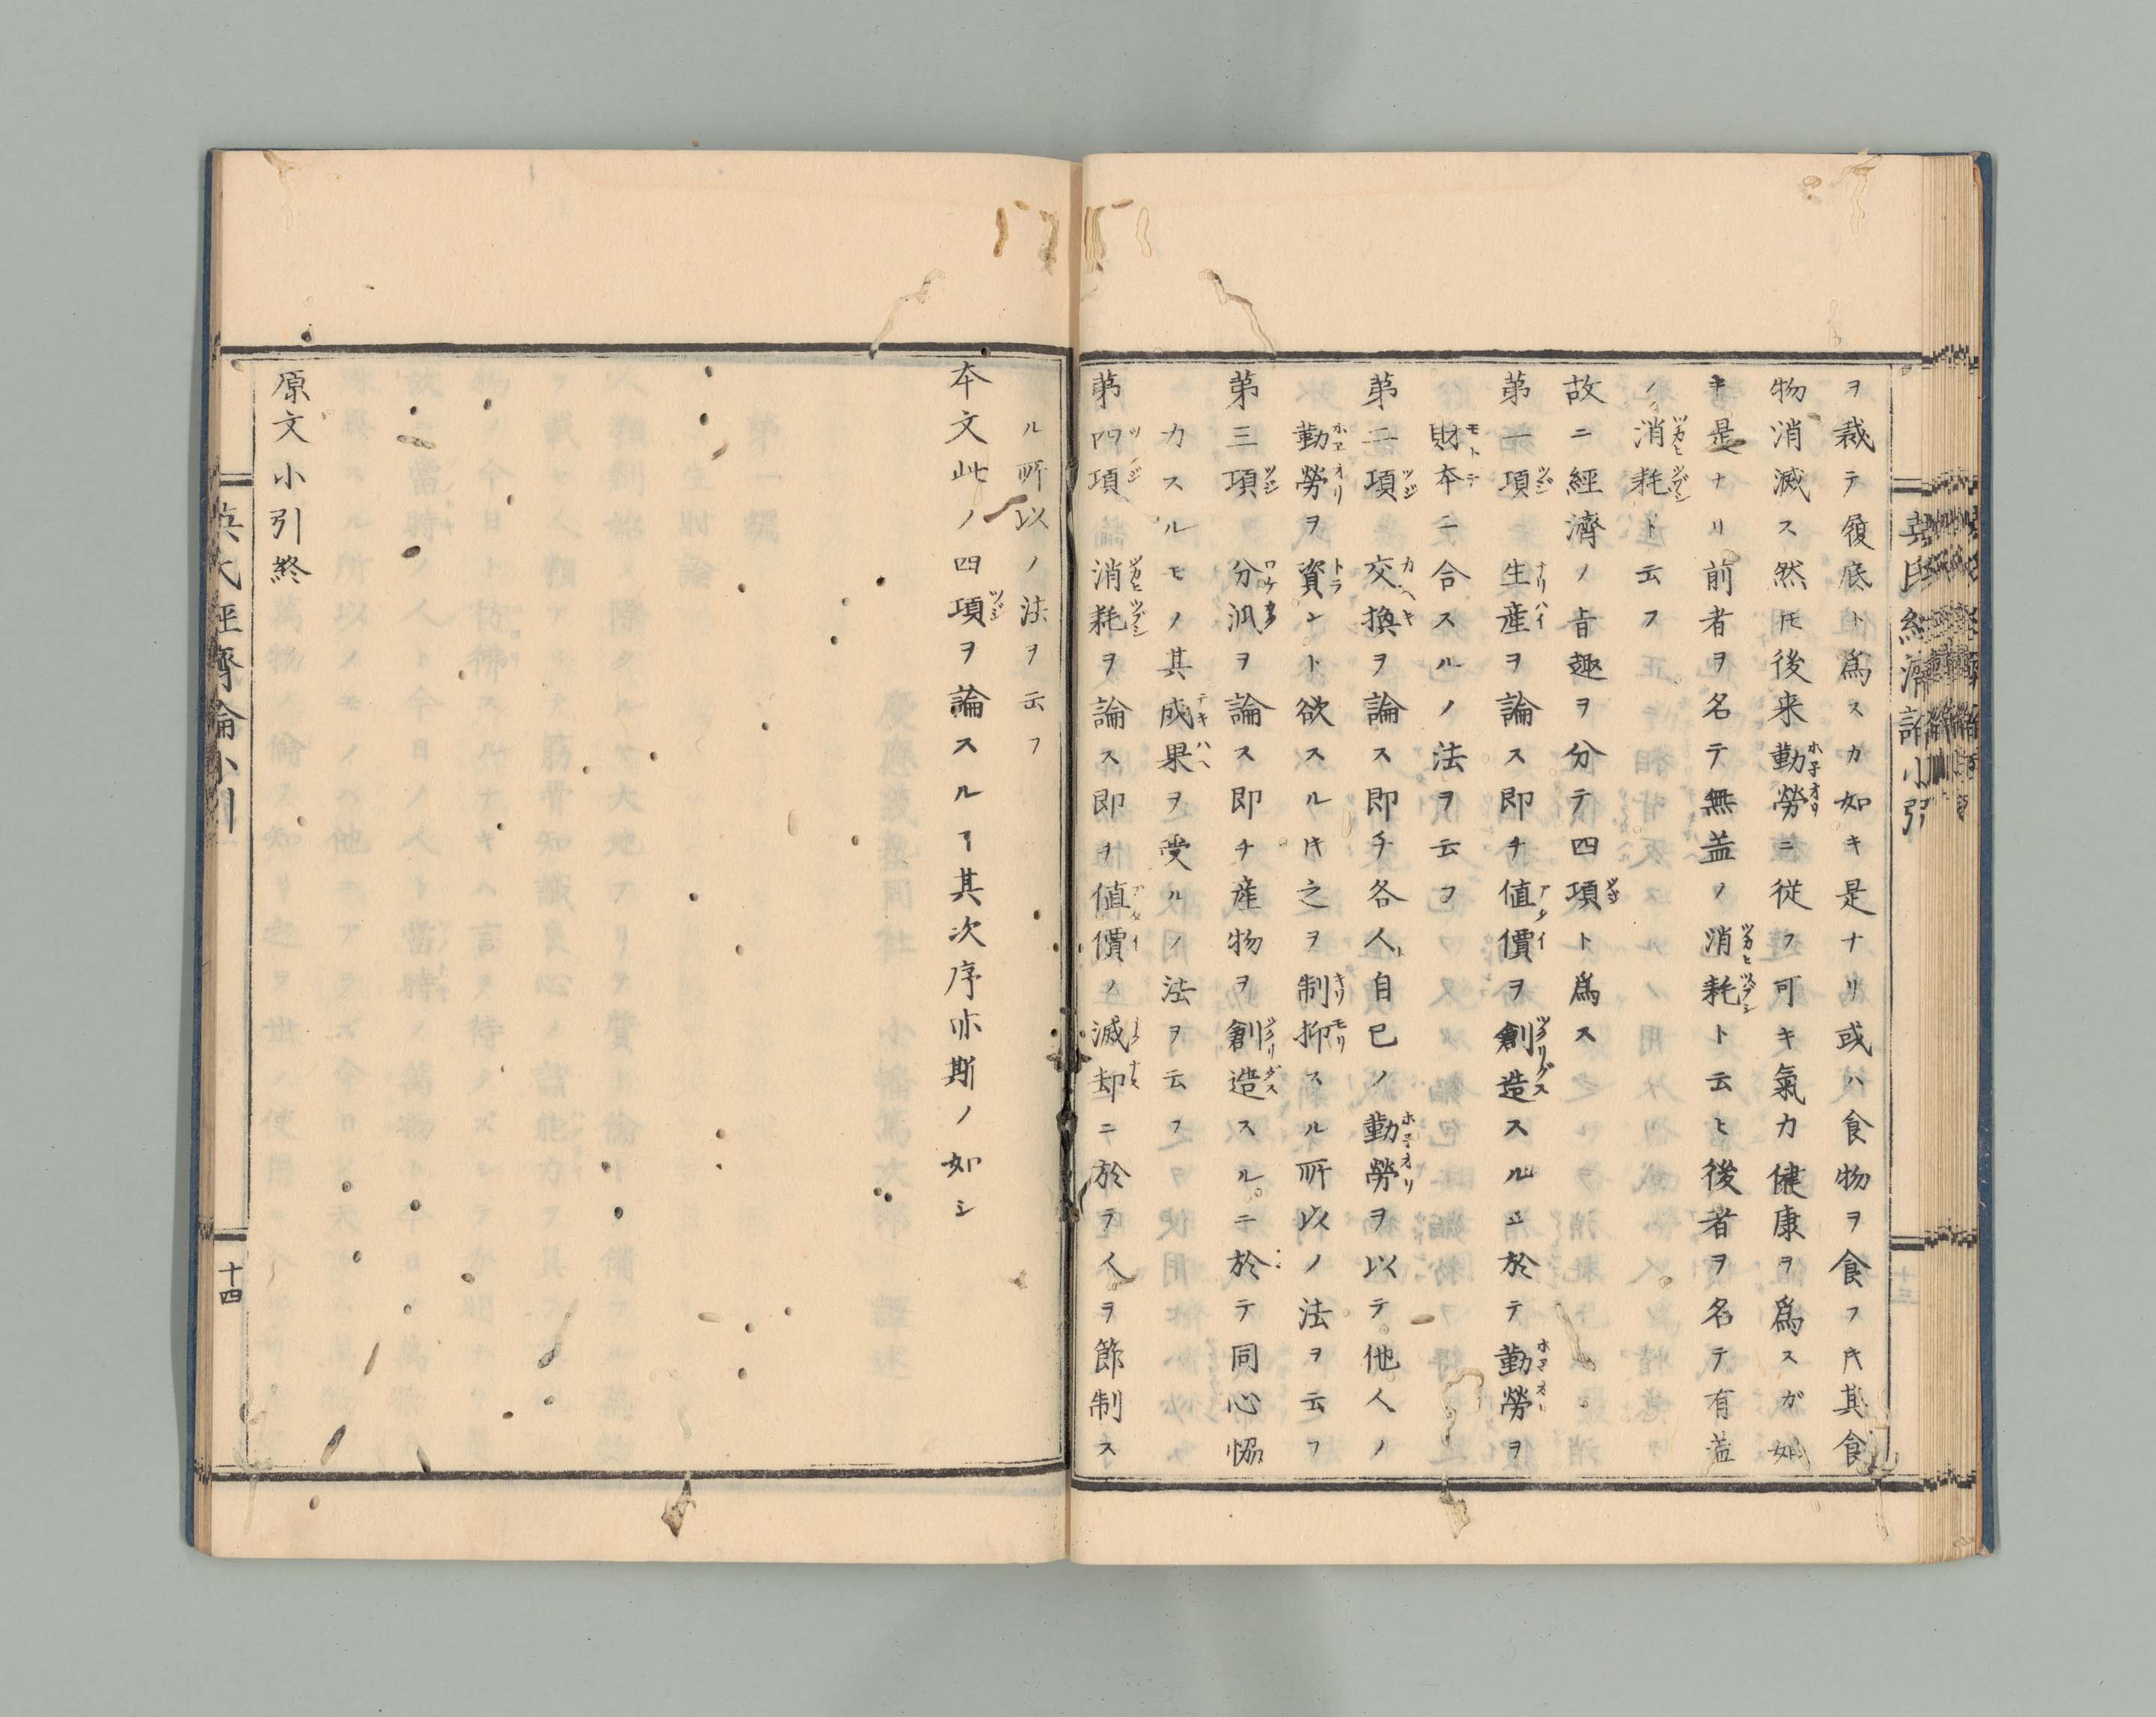 英氏經濟論小引
ヲ裁テ履底ト爲スカ如キ是ナリ或ハ食物ヲ食フ𪜈其食
物消滅ス然𪜈後来勤勞ニ従フ可キ氣力健康ヲ爲スガ如
キ是ナリ前者ヲ名テ無益ノ消耗ト云ヒ後者ヲ名テ有益
ノ消耗ト云フ
故ニ經濟ノ旨趣ヲ分テ四項ト爲ス
第一項 生産ヲ論ス即チ値價ヲ創造スルニ於テ勤勞ヲ
財本ニ合スルノ法ヲ云フ
第二項 交換ヲ論ス即チ各人自己ノ勤勞ヲ以テ他人ノ
勤勞ヲ資ント欲スル𪜈之ヲ制抑スル所以ノ法ヲ云フ
第三項 分派ヲ論ス即チ産物ヲ創造スルニ於テ同心協
力スルモノ其成果ヲ受ルノ法ヲ云フ
第四項 消耗ヲ論ス即チ値價ノ滅却ニ於テ人ヲ節制ス
ル所以ノ法ヲ云フ
本文此ノ四項ヲ論スルヿ其次序亦斯ノ如シ
原文小引終
英氏經濟論小引
十四